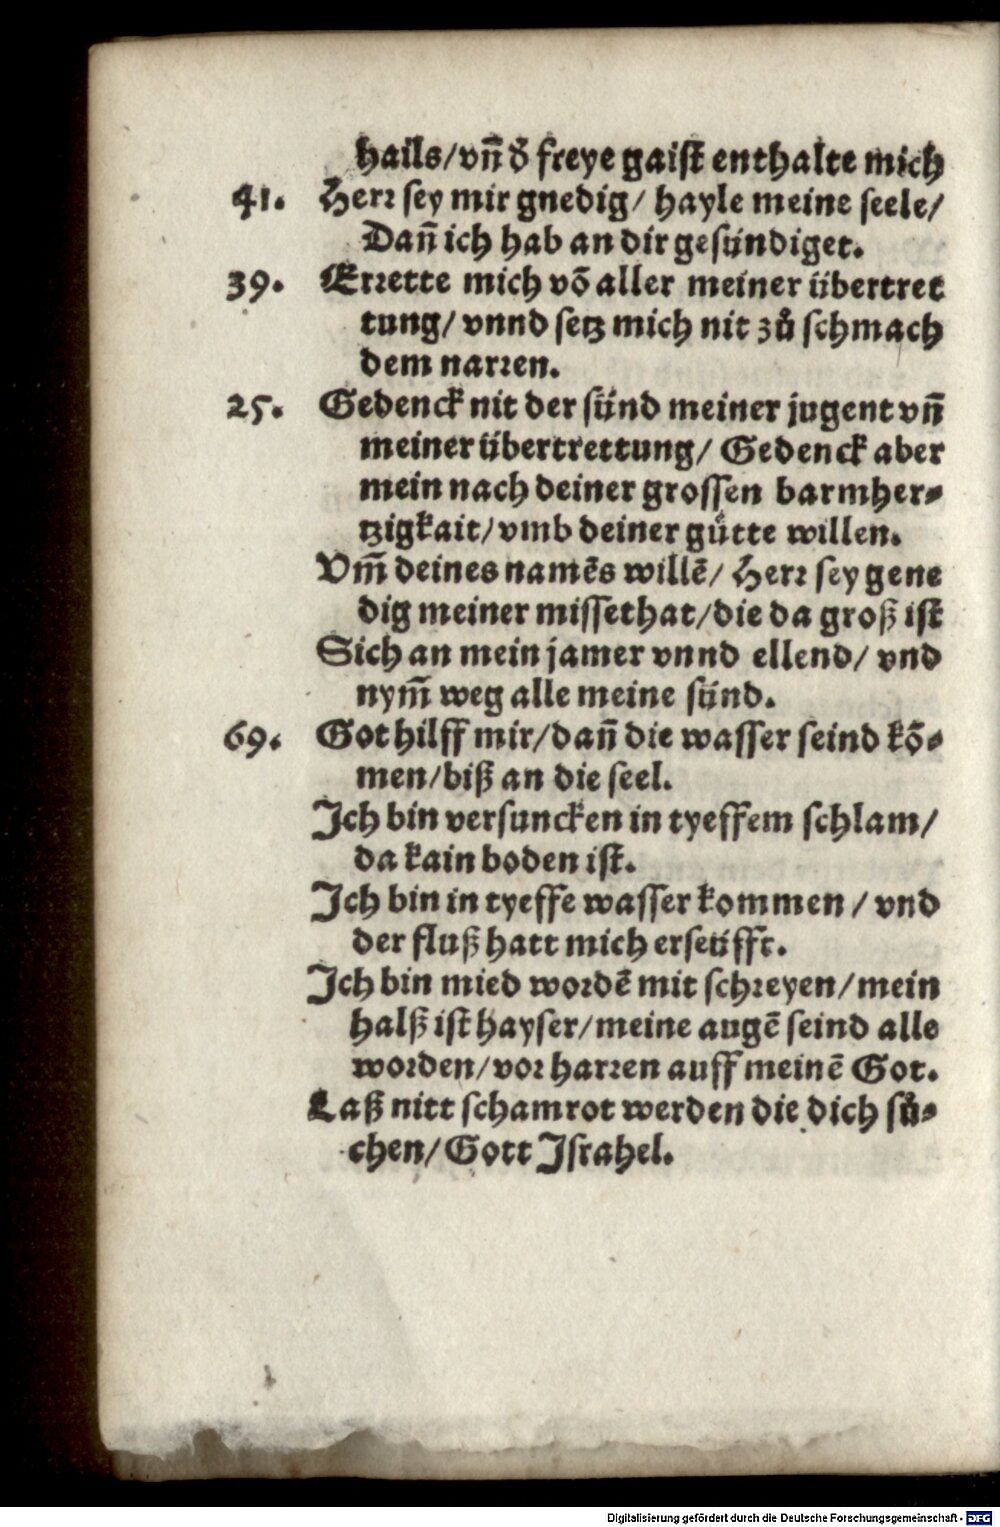 hails/vñ d̕ freye gaist enthalte mich
41. Herr sey mir gnedig/ hayle meine seele/
Dañ ich hab an dir gesündiget.
39. Errette mich võ aller meiner übertret
tung/ vnnd setz mich nit zů schmach
dem narren.
25. Gedenck nit der sünd meiner jugent vñ
meiner übertrettung/ Gedenck aber
mein nach deiner grossen barmher⸗
tzigkait/ vmb deiner gütte willen.
Vm̃ deines namẽs willẽ/ Herr sey gene
dig meiner missethat/die da groß ist
Sich an mein jamer vnnd ellend/ vnd
nym̃ weg alle meine sünd.
69. Got hilff mir/dañ die wasser seind kõ⸗
men/biß an die seel.
Ich bin versuncken in tyeffem schlam/
da kain boden ist.
Ich bin in tyeffe wasser kommen/ vnd
der fluß hatt mich erseüfft.
Ich bin mied wordẽ mit schreyen/mein
halß ist hayser/meine augẽ seind alle
worden/vor harren auff meinẽ Got.
Laß nitt schamrot werden die dich sů⸗
chen/Gott Israhel.
Digitalisierung gefördert durch die Deutsche Forschungsgemeinschaft - DFG